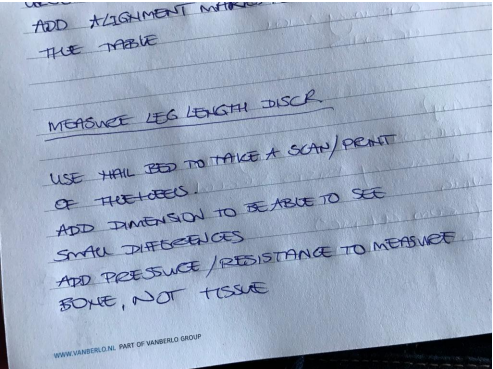 ADD ALIGNMENT
THE TABLE
MEASURE LEG LENGTH DISCR.
USE NAIL BED TO TAKE A SCAN/PRINT
OF THE HEELS.
ADD DIMENSION TO BE ABLE TO SEE
SMALL DIFFERENCES
ADD PRESSURE/RESISTANCE TO MEASURE
BONE, NOT TISSUE
WWW.VANBERLO.NL PART OF VANBERLO GROUP